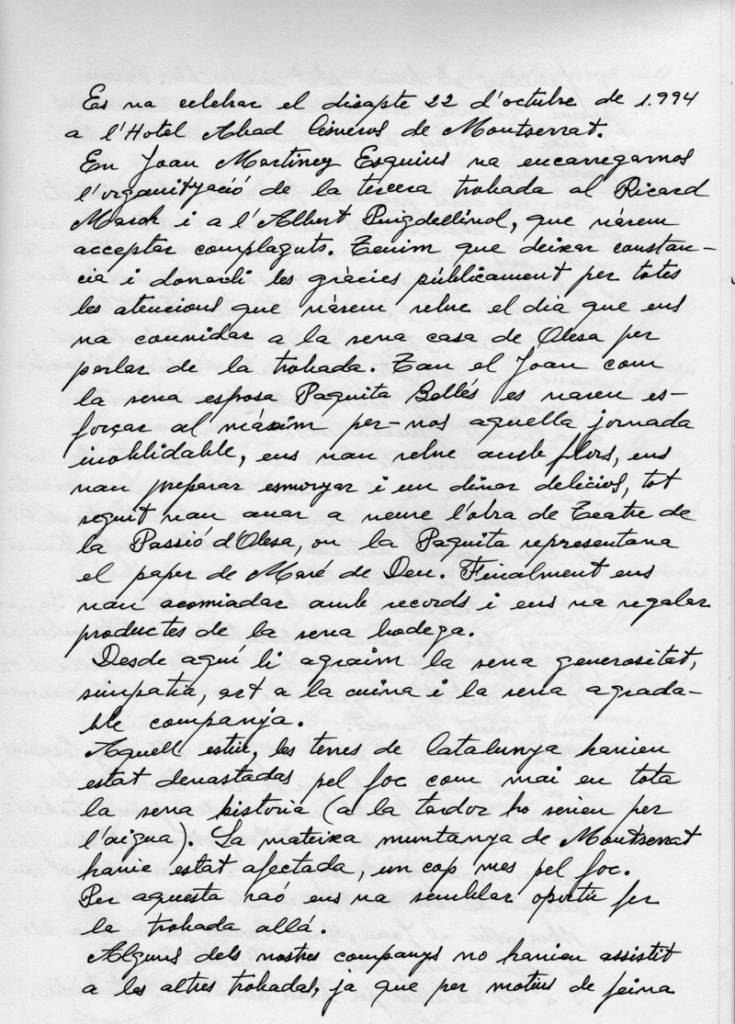 Es va celebrar el disapte 22 d'octubre de 1.994
a l'Hotel Abad Cisneros de Montserrat.
En Joan Martinez Esquius va encarregarnos
l'organització de la tercera trobada al Ricard
March i a l'Albert Puigdellivol, que vàrem
acceptar complaguts. Tenim que deixar constan-
cia i donarli les gràcies públicament per totes
les atencions que vàrem rebre el dia que ens
va convidar a la seva casa de Olesa per
parlar de la trobada. Tan el Joan com
la seva esposa Paquita Bollés es varen es-
forçar al màxim per-nos aquella jornada
inoblidable, ens van rebre amb flors, ens
van preparar esmorzar i un dinar delicios, tot
seguit van anar a veure l'obra de Teatre de
la Passió d'Olesa, on la Paquita representava
el paper de Maré de Deu. Finalment ens
van acomiadar amb records i ens va regalar
productes de la seva bodega.
Desde aquí li agraim la seva generositat,
simpatia, art a la cuina i la seva agrada-
ble companyia.
Aquell estiu, les terres de Catalunya havien
estat devastadas pel foc com mai en tota
la seva historia (a la tardor ho serien per
l'aigua). La mateixa muntanya de Montserrat
havie estat afectada, un cop mes pel foc.
Per aquesta raó ens va semblar oportú fer
la trobada allá.
Alguns dels nostres companys no havien assistit
a les altres trobades, ja que per motius de feina